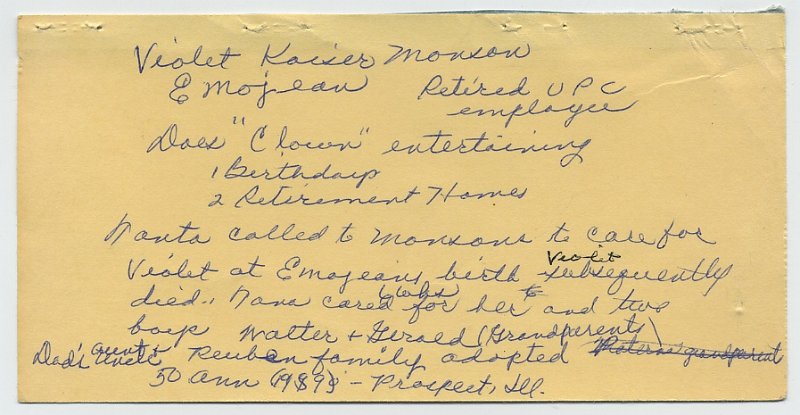 Violet Kaiser Monson
Emojean Retired UPC
employee
Does "Clown" entertaining
1 Birthdays
2 Retirement Homes
Nanta called to Monsons to care for
Violet at Emojeans birth Violet subsequently
died.. Nana cared for her and two
boys Walter + Gerald (Grandparents)
Dad's aunt + uncle Reuben family adopted
50 Ann (1989) - Prospect, Ill.